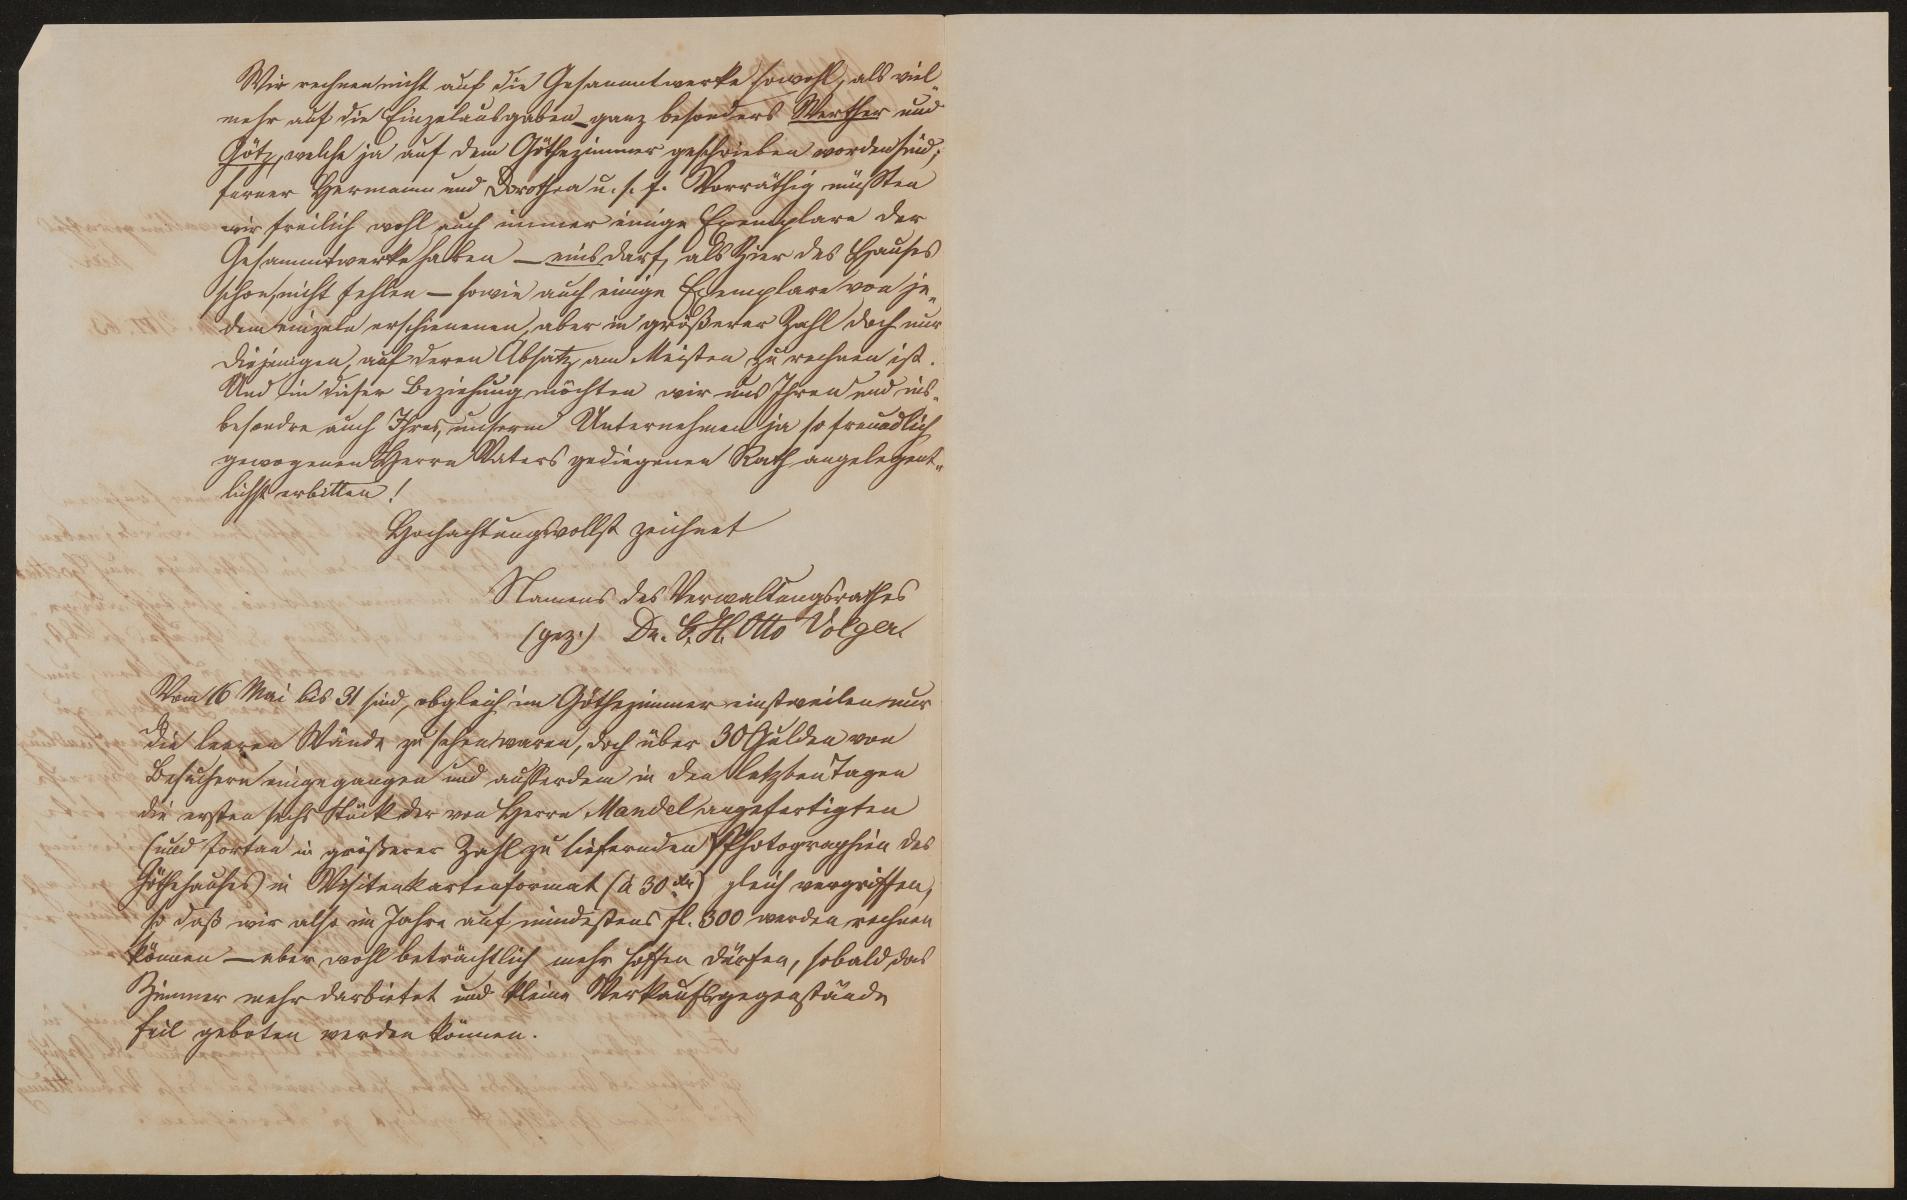 Wir rechnen nicht auf die Gesammtwerke sowohl, als viel„
mehr auf die Einzelausgaben – ganz besonders Werther und
Götz, welche ja auf dem Göthezimmer geschrieben worden sind;
ferner Hermann und Dorothea u. s. f. Vorräthig müßten
wir freilich wohl auch immer einige Exemplare der
Gesammtwerke haben – eins darf, als Zier des Hauses
schon, nicht fehlen – sowie auch einige Exemplare von je„
dem einzeln erschienenen, aber in größerer Zahl doch nur
diejenigen, auf deren Absatz am Meisten zu rechnen ist.
Und in dieser Beziehung möchten wir uns Ihren und ins„
besondre auch Ihres, unserm Unternehmen ja so freundlich
gewogenen Herrn Vaters gediegenen Rath angelegent„
lichst erbitten!
Hochachtungsvollst zeichnet
Namens des Verwaltungsrathes
(gez.) Dr. G. H. Otto Volger.
Vom 16 Mai bis 31 sind, obgleich im Göthezimmer einstweilen nur
die leeren Wände zu sehen waren, doch über 30 Gulden von
Besuchern eingegangen und ausserdem in den letzten Tagen
die ersten sechs Stück der von Herrn Mandel angefertigten
(und fortan in größerer Zahl zu liefernden) Photographien des
Göthehauses in Visitenkartenformat (à 30 kr) gleich vergriffen,
so daß wir also im Jahre auf mindestens fl. 300 werden rechnen
können – aber wohl beträchtlich mehr hoffen dürfen, sobald das
Zimmer mehr darbietet und kleine Verkaufsgegenstände
feil geboten werden können.